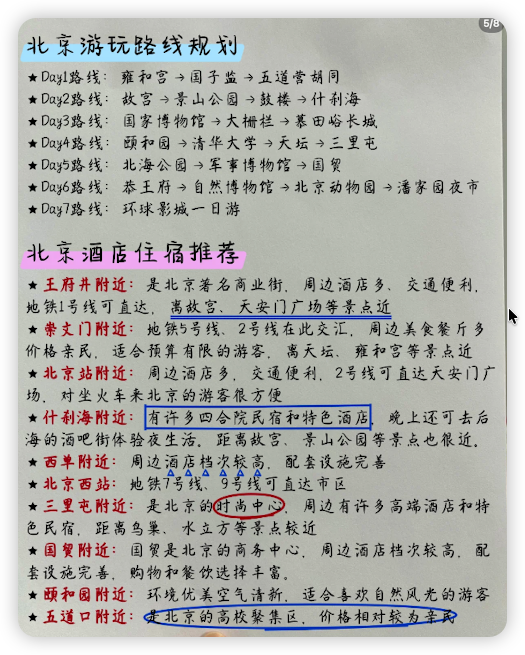 5/8
北京游玩路线规划
★Day1路线：雍和宫→国子监→五道营胡同
★Day2路线：故宫→景山公园→鼓楼→什刹海
★Day3路线：国家博物馆→大栅栏→慕田峪长城
★Day4路线：颐和园→清华大学→天坛→三里屯
★Day5路线：北海公园→军事博物馆→国贸
★Day6路线：恭王府→自然博物馆→北京动物园→潘家园夜市
★Day7路线：环球影城一日游
北京酒店住宿推荐
★王府井附近：是北京著名商业街，周边酒店多、交通便利，
地铁1号线可直达，离故宫、天安门广场等景点近
★崇文门附近：地铁5号线、2号线在此交汇，周边美食餐厅多
价格亲民，适合预算有限的游客，离天坛、雍和宫等景点近
★北京站附近：周边酒店多，交通便利，2号线可直达天安门广
场，对坐火车来北京的游客很方便
★什刹海附近：有许多四合院民宿和特色酒店，晚上还可去后
海的酒吧街体验夜生活，距离故宫、景山公园等景点也很近。
★西单附近：周边酒店档次较高，配套设施完善
★北京西站：地铁7号线、9号线可直达市区
★三里屯附近：是北京的时尚中心，周边有许多高端酒店和特
色民宿，距离鸟巢、水立方等景点较近
★国贸附近：国贸是北京的商务中心，周边酒店档次较高，配
套设施完善，购物和餐饮选择丰富。
★颐和园附近：环境优美空气清新，适合喜欢自然风光的游客
★五道口附近：是北京的高校聚集区，价格相对较为亲民